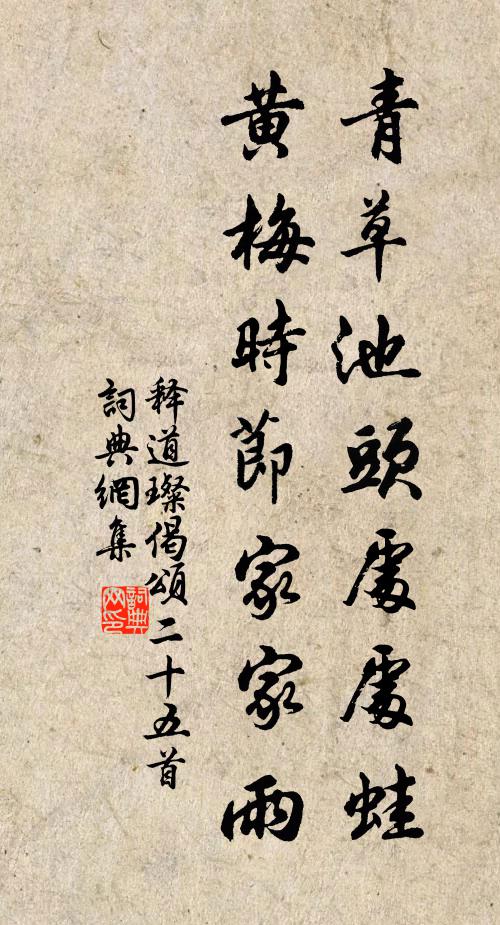 青草池頭處處蛙
黄梅時節家家雨
释道璨偈頌二十五首
詞典網集
詞典网印